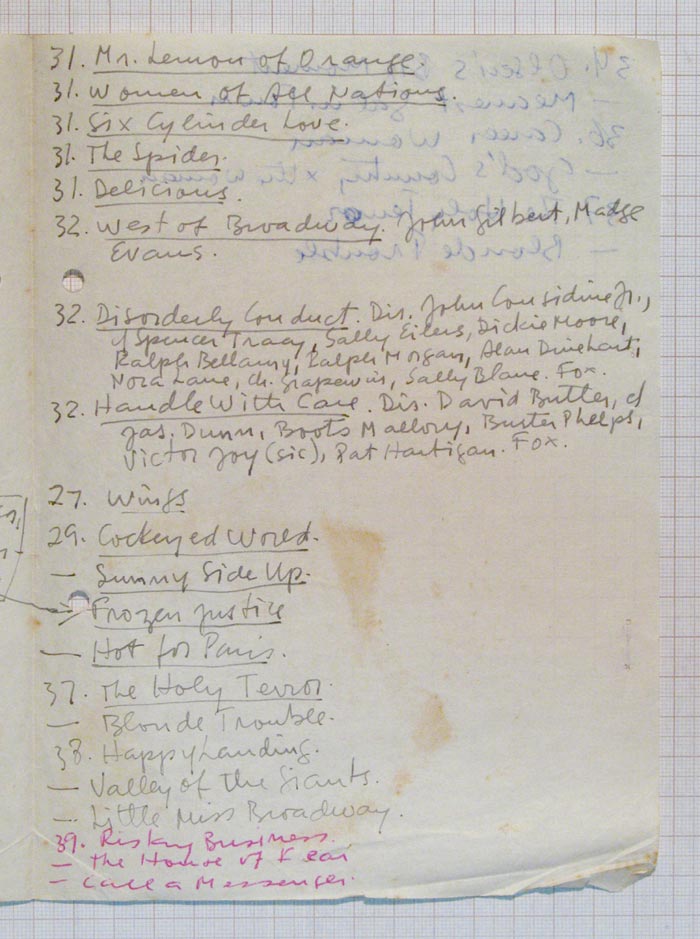 31. Mr. Lemon of Orange.
31. Women of All Nations.
31. Six Cylinder Love.
31. The Spider.
31. Delicious.
32. West of Broadway. John Gilbert, Madge
Evans.
32. Disorderly Conduct. Dir. John Considine Jr.,
Spencer Tracy, Sally Eilers, Dickie Moore,
Ralph Bellamy, Ralph Morgan, Alan Dinehart,
Nora Lane, Ch. Grapewin, Sally Blane. Fox.
32. Handle With Care. Dir. David Butler,
Jas. Dunn, Boots Mallory, Buster Phelps,
Victor Jory (sic), Pat Hartigan. Fox.
27. Wings
29. Cockeyed World.
— Sunny Side Up.
— Frozen Justice
— Hot for Paris.
37. The Holy Terror.
— Blonde Trouble.
38. Happy Landing.
— Valley of the Giants.
— Little Miss Broadway.
39. Risky Business.
— The House of Fear
— Call a Messenger.